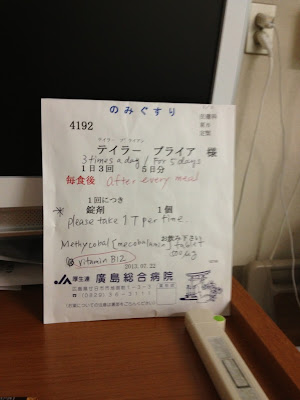 のみぐすり
4192
テイラー ブライアン
テイラー ブライア 様
3 times a day / For 5 days
1日3回 5日分
毎食後 after every meal
1回につき
* 錠剤 1個
please take 1T per time.
お飲み下さい
Methycobal [mecobalamin] tablet
vitamin B12
2013.07.22
JA 厚生連 廣島総合病院